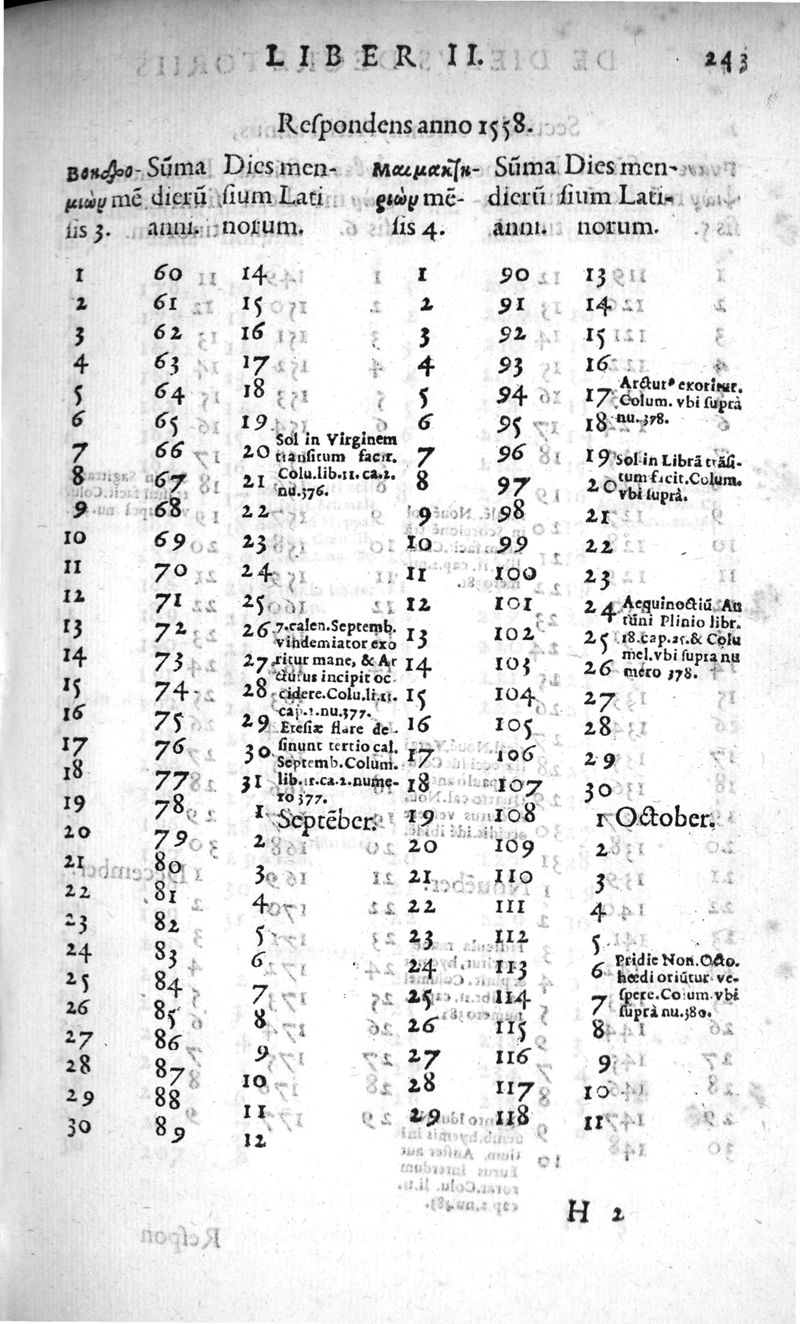 LIBER II. 243
Reſpondens anno 1558.
Βοηδρο- Sūma Dies men- Μαιμακτη- Sūma Dies men-
μιὼν mē dierū ſium Lati ριὼν mē- dierū ſium Lati-
ſis 3. anni. norum. ſis 4. anni. norum.
1 60 14 1 90 13
2 61 15 2 91 14
3 62 16 3 92 15
4 63 17 4 93 16
5 64 18 5 94 17 Arcturꝰ exoritur.
Colum. vbi ſuprà
6 65 19 6 95 18 nu.378.
7 66 20 Sol in Virginem 7 96 19 Sol in Librā trāſi-
tranſitum facit. tum facit.Colum.
8 67 21 Colu.lib.11.ca.2. 8 97 20 vbi ſuprà.
nu.376.
9 68 22 9 98 21
10 69 23 10 99 22
11 70 24 11 100 23
12 71 25 12 101 24 Aequinoctiū Au
tūni Plinio libr.
13 72 26 7.calen.Septemb. 13 102 25 18.cap.25.& Colu
vindemiator exo mel.vbi ſupra nu
14 73 27 ritur mane, & Ar 14 103 26 mero 378.
cturus incipit oc
15 74 28 cidere.Colu.li.11. 15 104 27
cap.2.nu.377.
16 75 29 Eteſiæ flare de- 16 105 28
17 76 30 ſinunt tertio cal. 17 106 29
Septemb.Colum.
18 77 31 lib.11.ca.2.nume- 18 107 30
ro 377.
19 78 1 Septēber. 19 108 1 October.
20 79 2 20 109 2
21 80 3 21 110 3
22 81 4 22 111 4
23 82 5 23 112 5
24 83 6 24 113 6 Pridie Non.Octo.
hœdi oriūtur ve-
25 84 7 25 114 7 ſpere.Colum.vbi
ſuprà nu.380.
26 85 8 26 115 8
27 86 9 27 116 9
28 87 10 28 117 10
29 88 11 29 118 11
30 89 12
H 2